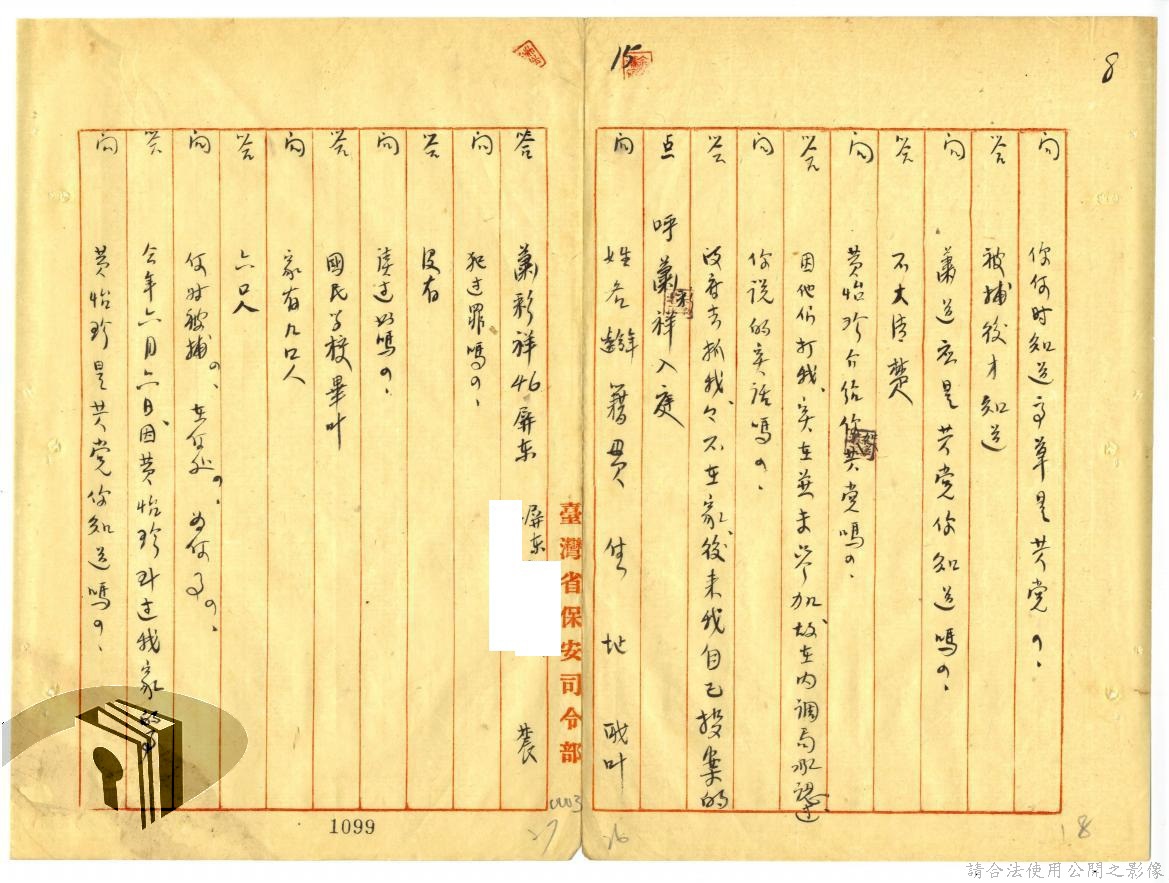 8
15
问 你何时知道高草是共党?
答 被捕後才知道
问 萧道应是共党你知道吗?
答 不大清楚
问 黄怡珍介绍你共党吗?
答 因他们打我,实在並未参加,故在内调局承認过
问 你说的实话吗?
答 政府去抓我,我不在家,後来我自己投案的
点 呼萧彩祥入庭
问 姓名 年 籍贯 住址 职叶
答 萧彩祥 46 屏东 屏东 農
问 犯过罪吗?
答 没有
问 读过书吗?
答 國民学校畢叶
问 家有几口人
答 六口人
问 何时被捕?在何处?为何事?
答 今年六月六日,因黄怡珍到过我家的事
问 黄怡珍是共党你知道吗?
臺灣省保安司令部
0003
1099
27
26
18
請合法使用公開之影像